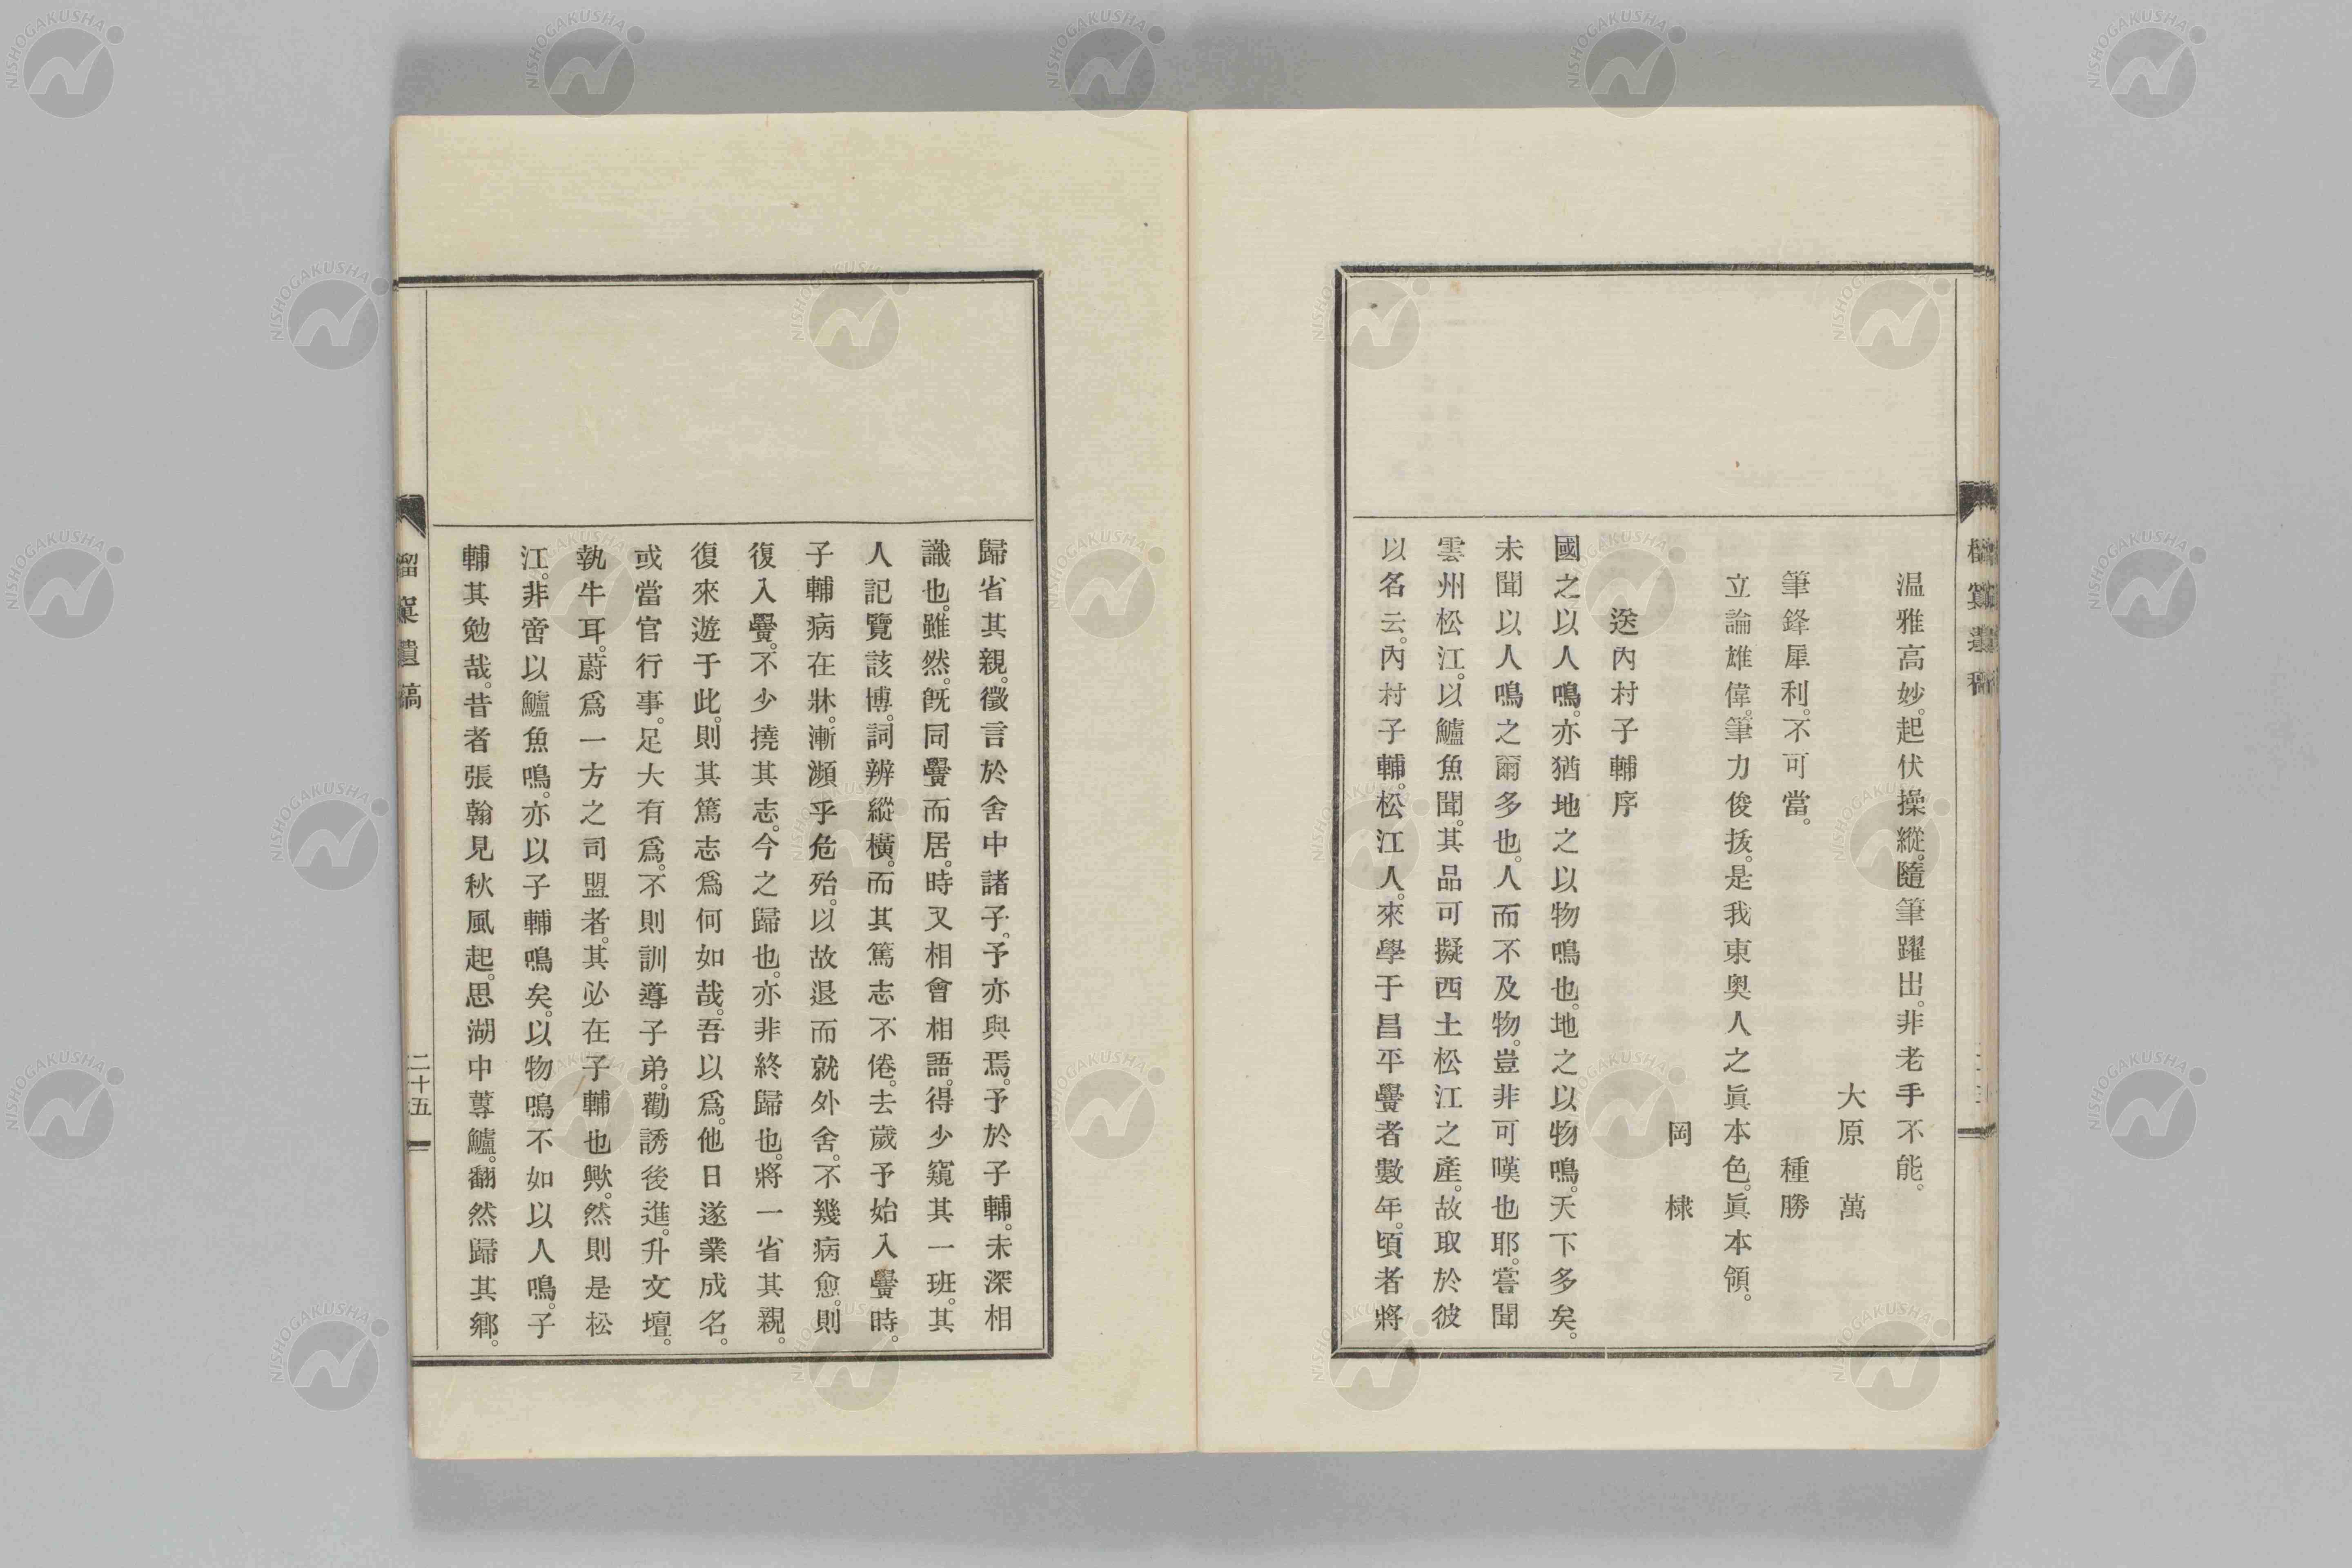 温雅高妙。起伏操縱。隨筆躍出。非老手不能。
大原 萬
筆鋒犀利。不可當。 種勝
立論雄偉。筆力俊拔。是我東奧人之眞本色。眞本領。
岡 棣
送內村子輔序
國之以人鳴。亦猶地之以物鳴也。地之以物鳴。天下多矣。
未聞以人鳴之爾多也。人而不及物。豈非可嘆也耶。嘗聞
雲州松江。以鱸魚聞。其品可擬西土松江之產。故取於彼
以名云。內村子輔。松江人。來學于昌平黌者數年。頃者將
歸省其親。徵言於舍中諸子。予亦與焉。予於子輔。未深相
識也。雖然。旣同黌而居。時又相會相語。得少窺其一班。其
人記覽該博。詞辨縱橫。而其篤志不倦。去歲予始入黌時。
子輔病在牀。漸瀕乎危殆。以故退而就外舍。不幾病愈。則
復入黌。不少撓其志。今之歸也。亦非終歸也。將一省其親。
復來遊于此。則其篤志爲何如哉。吾以爲。他日遂業成名。
或當官行事。足大有爲。不則訓導子弟。勸誘後進。升文壇。
執牛耳。蔚爲一方之司盟者。其必在子輔也歟。然則是松
江。非啻以鱸魚鳴。亦以子輔鳴矣。以物鳴不如以人鳴。子
輔其勉哉。昔者張翰見秋風起。思湖中蓴鱸。翻然歸其鄉。
遺稿
二十五
NISHOGAKUSHA